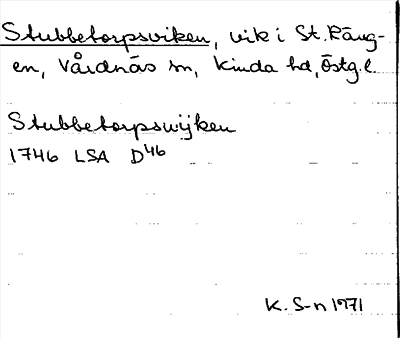 Stubbetorpsviken, vik i St. Räng-
en, Vårdnäs sn, Kinda hd, Östg. l.
Stubbetorpswijken
1746 LSA D46
K. S-n 1971